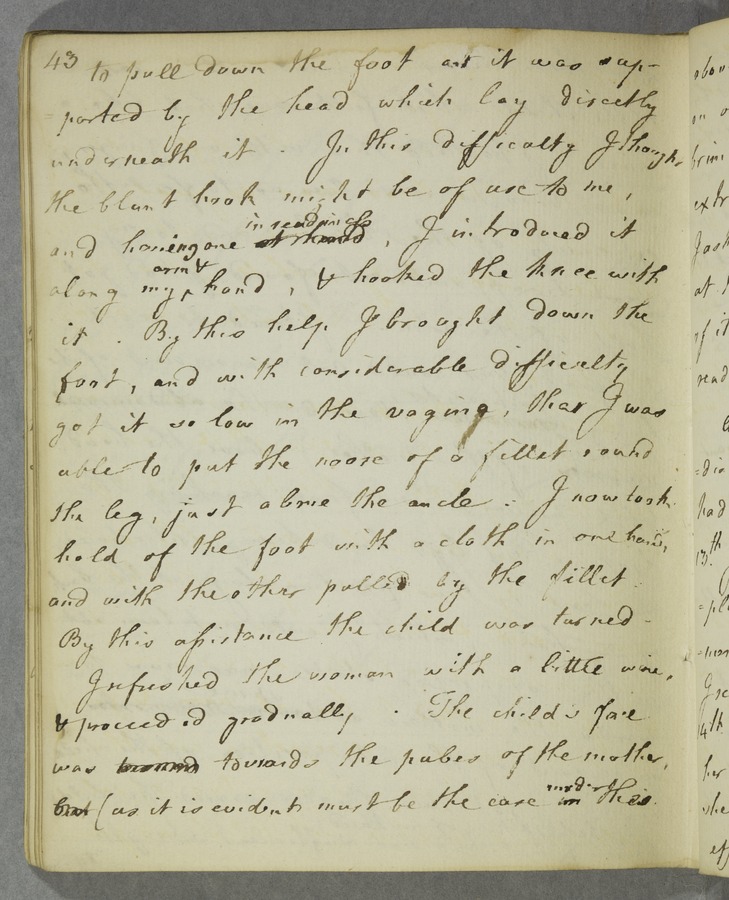 43 to pull down the foot as it was sup-
=ported by the head which lay directly
underneath it . In this difficulty I thought
the blunt hook might be of use to me,
in readiness
and having one at hand, I introduced it
arm &
along my hand, & hooked the knee with
it . By this help I brought down the
foot, and with considerable difficulty
got it so low in the vagina, that I was
able to put the noose of a fillet round
the leg, just above the ancle : I now took
hold of the foot with a cloth in one hand,
and with the other pulled by the fillet .
By this assistance the child was turned -
I refreshed the woman with a little wine,
& proceeded gradually . The child's face
was towards the pubes of the mother,
but (as it is evident must be the case in this